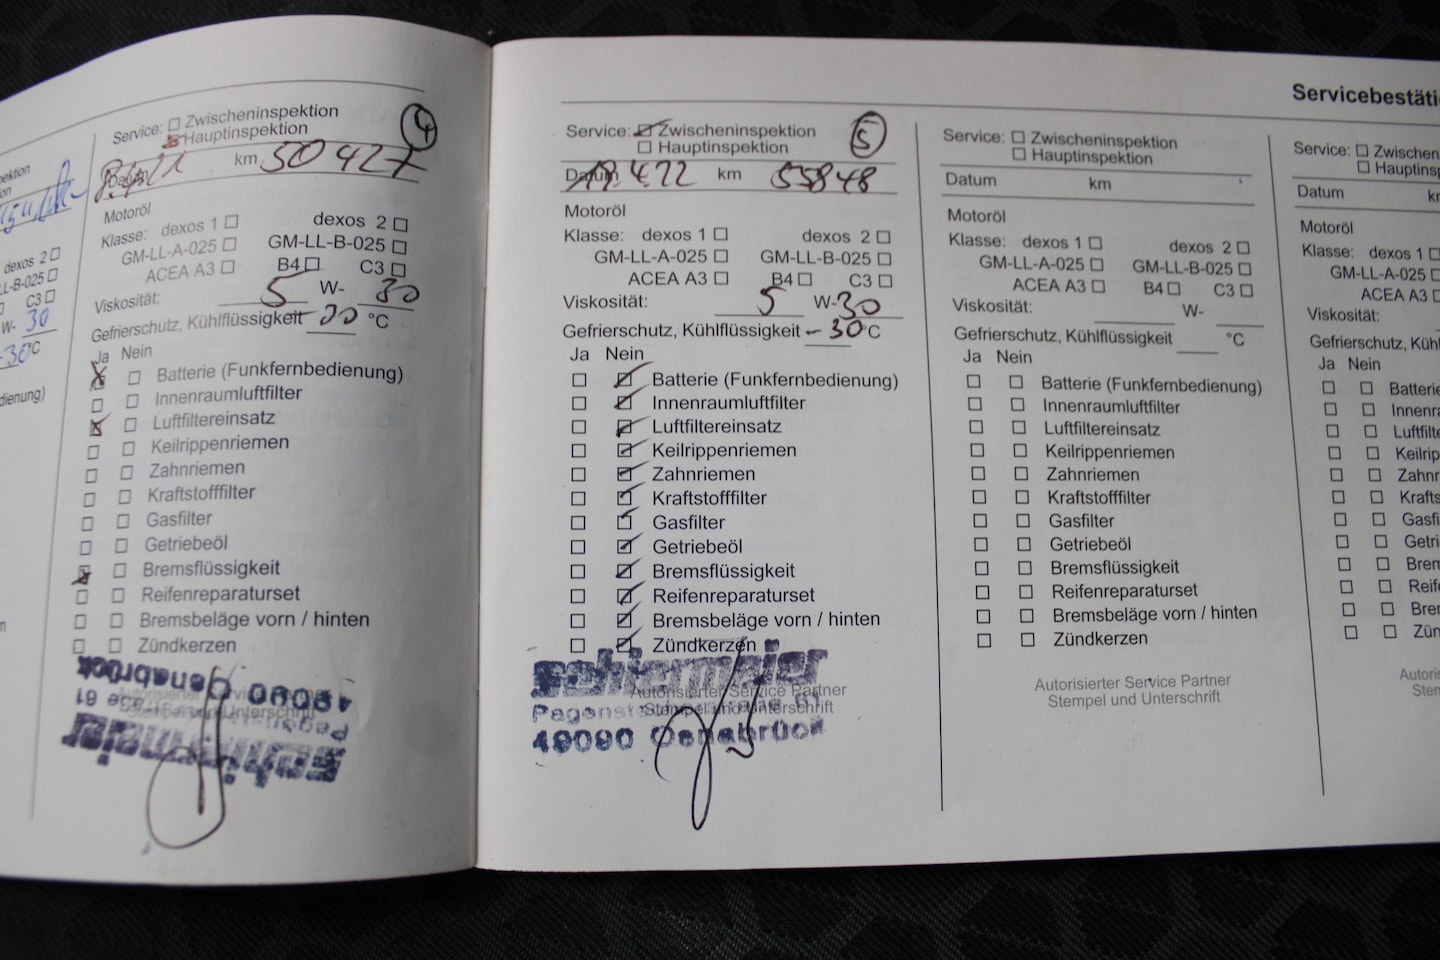 Servicebestäti
Service: Zwischeninspektion
Hauptinspektion
4
Datum km 50 427
Motoröl
Klasse: dexos 1 dexos 2
GM-LL-A-025 GM-LL-B-025
ACEA A3 B4 C3
Viskosität: 5 W- 30
Gefrierschutz, Kühlflüssigkeit °C
Ja Nein
Batterie (Funkfernbedienung)
Innenraumluftfilter
Luftfiltereinsatz
Keilrippenriemen
Zahnriemen
Kraftstofffilter
Gasfilter
Getriebeöl
Bremsflüssigkeit
Reifenreparaturset
Bremsbeläge vorn / hinten
Zündkerzen
Autorisierter Service Partner
Stempel und Unterschrift
49090 Osnabrück
dexos 2
C3
W- 30
-30°C
Service: Zwischeninspektion
Hauptinspektion
5
Datum 19.4.22 km 55848
Motoröl
Klasse: dexos 1 dexos 2
GM-LL-A-025 GM-LL-B-025
ACEA A3 B4 C3
Viskosität: 5 W-30
Gefrierschutz, Kühlflüssigkeit -30°C
Ja Nein
Batterie (Funkfernbedienung)
Innenraumluftfilter
Luftfiltereinsatz
Keilrippenriemen
Zahnriemen
Kraftstofffilter
Gasfilter
Getriebeöl
Bremsflüssigkeit
Reifenreparaturset
Bremsbeläge vorn / hinten
Zündkerzen
Autorisierter Service Partner
Stempel und Unterschrift
49090 Osnabrück
Service: Zwischeninspektion
Hauptinspektion
Datum km
Motoröl
Klasse: dexos 1 dexos 2
GM-LL-A-025 GM-LL-B-025
ACEA A3 B4 C3
Viskosität: W-
Gefrierschutz, Kühlflüssigkeit °C
Ja Nein
Batterie (Funkfernbedienung)
Innenraumluftfilter
Luftfiltereinsatz
Keilrippenriemen
Zahnriemen
Kraftstofffilter
Gasfilter
Getriebeöl
Bremsflüssigkeit
Reifenreparaturset
Bremsbeläge vorn / hinten
Zündkerzen
Autorisierter Service Partner
Stempel und Unterschrift
Service: Zwischen
Hauptins
Datum
Motoröl
Klasse: dexos 1
GM-LL-A-025
ACEA A3
Viskosität:
Gefrierschutz, Kühl
Ja Nein
Batterie
Innenra
Luftfilte
Keilripp
Zahnr
Krafts
Gasfi
Getri
Brem
Reife
Bre
Zün